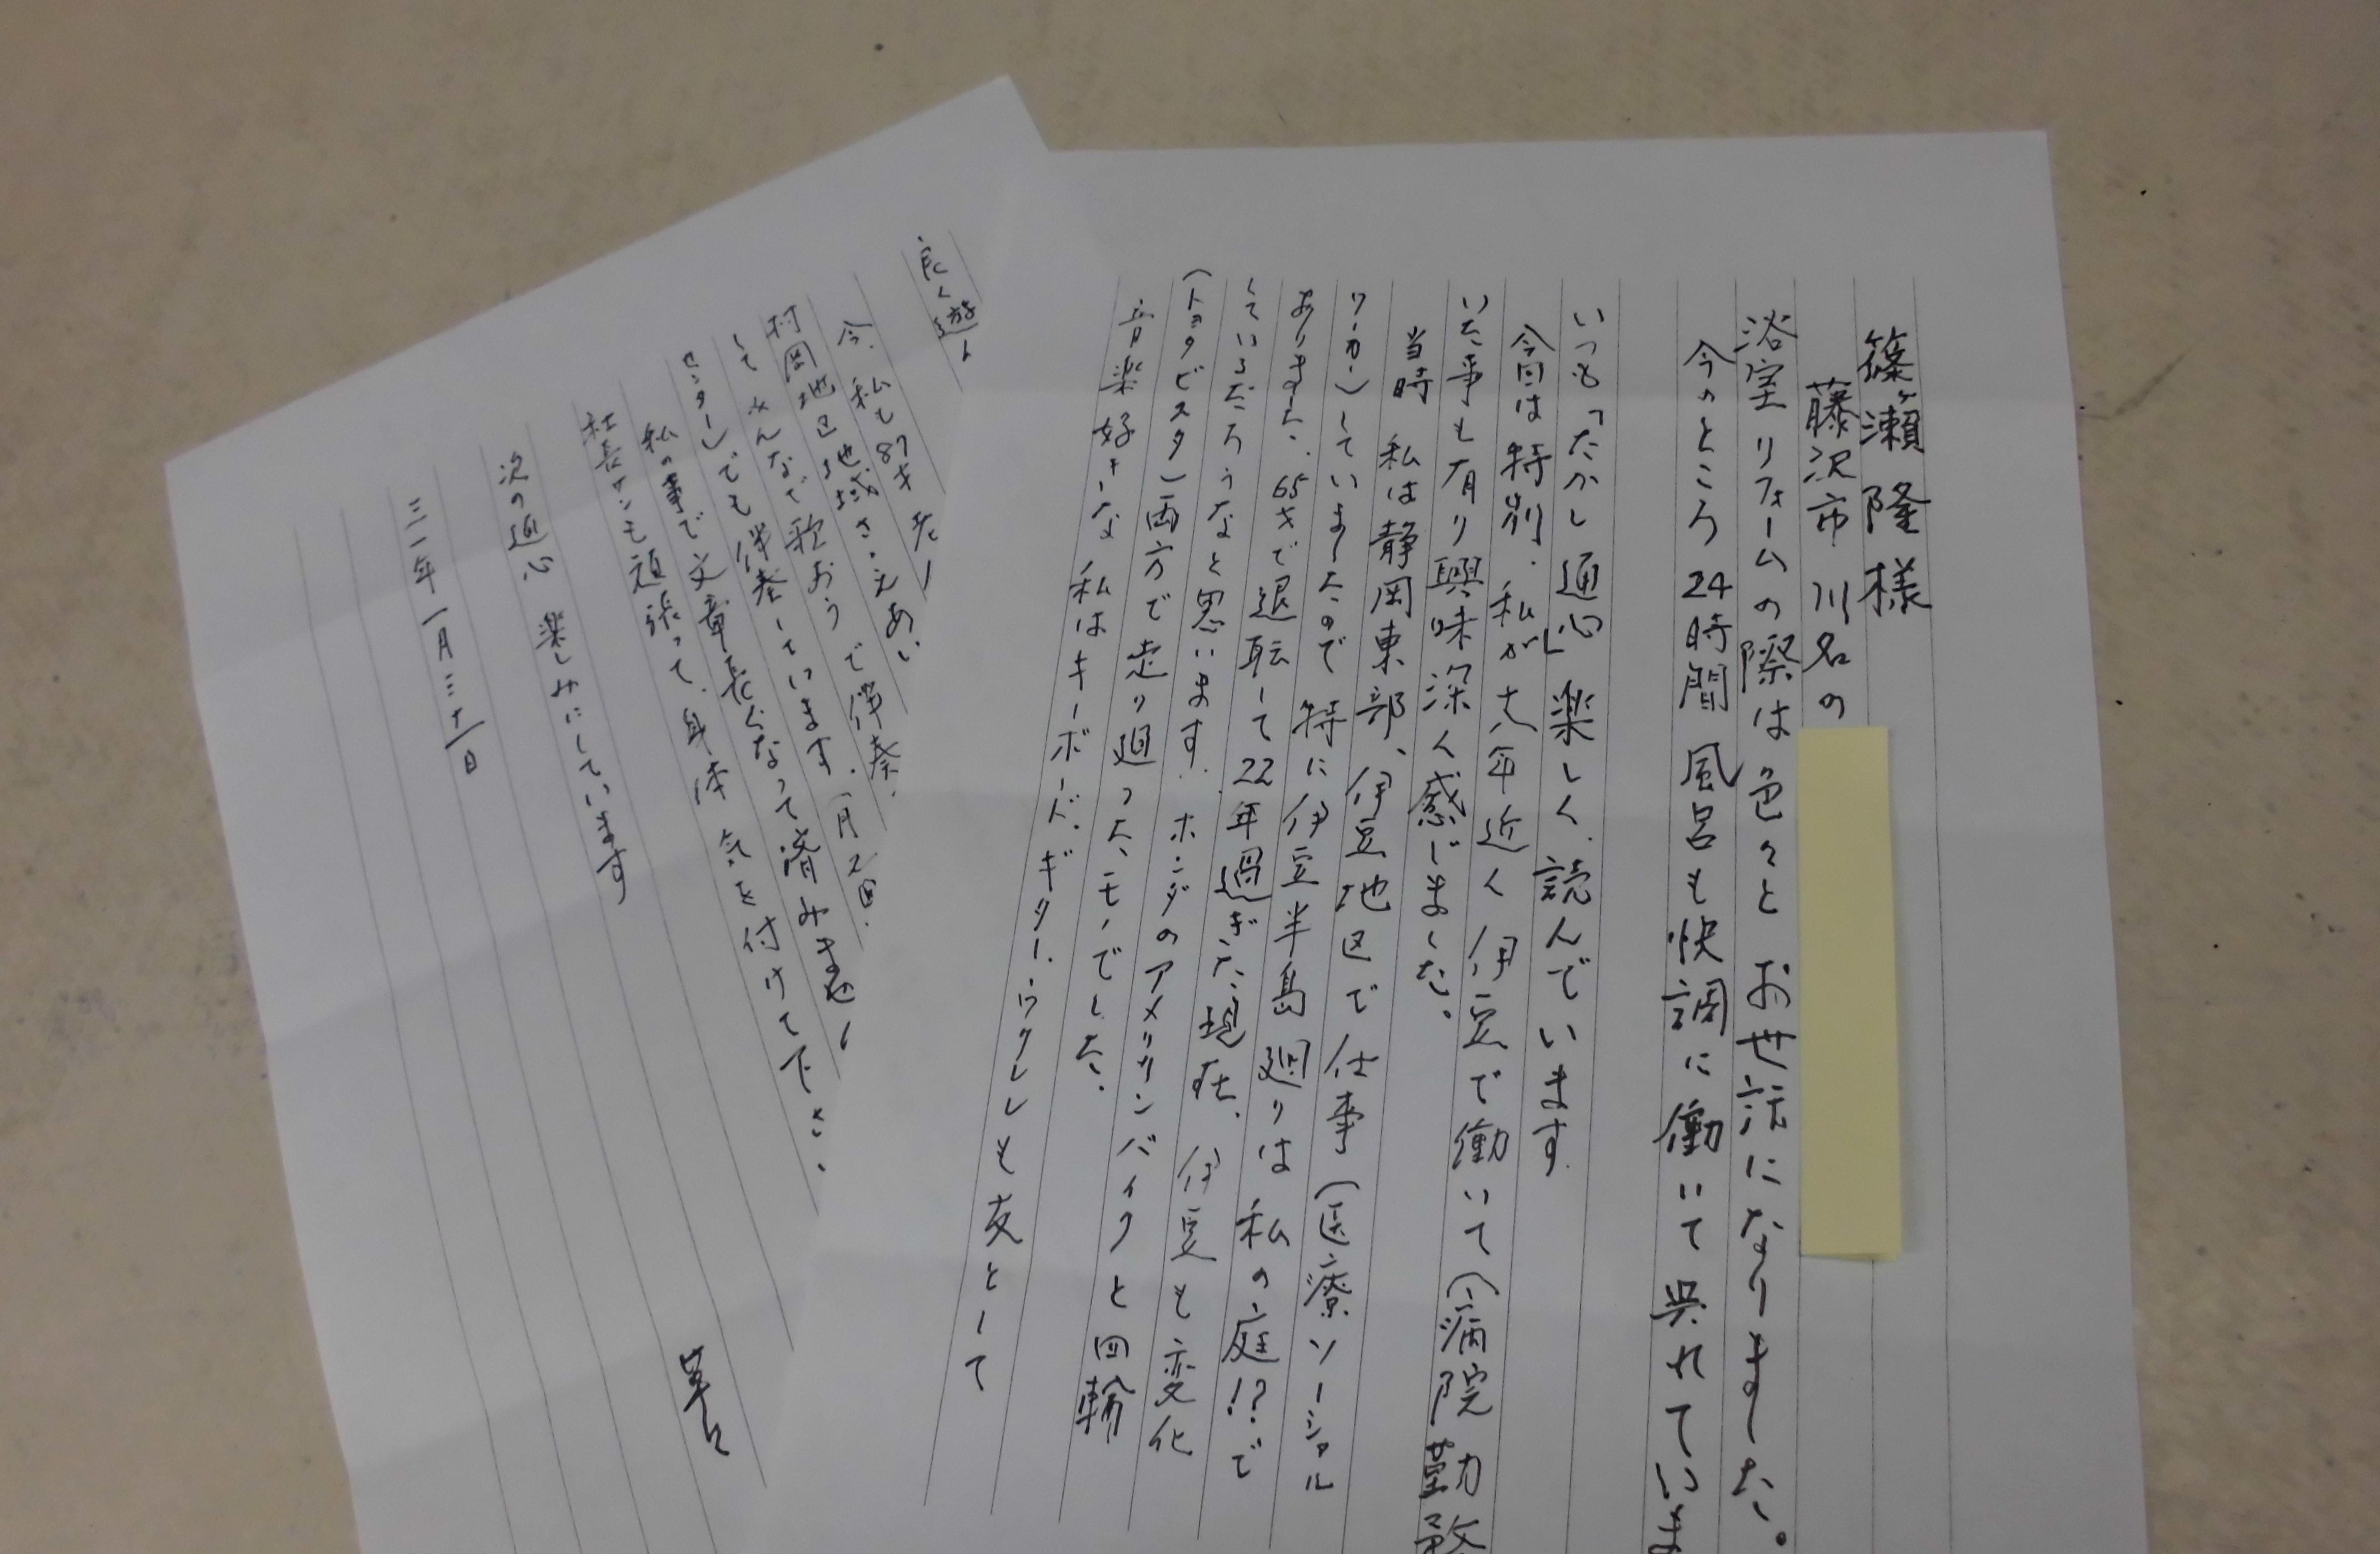 篠ヶ瀬 隆 様
藤沢市 川名の
浴室リフォームの際は色々と お世話になりました。
今のところ 24時間 風呂も快調に働いて呉れていま
いつも「たかし通心」楽しく、読んでいます
今回は特別、私が 十八年近く 伊豆で働いて(病院勤務
いた事も有り興味深く感じました。
当時 私は静岡東部、伊豆地区で仕事(医療ソーシャル
ワーカー)していましたので 特に伊豆半島廻りは私の庭!?で
ありました、65才で退転して22年過ぎた現在、伊豆も変化
しているだろうなと思います。ホンダのアメリカンバイクと四輪
(トヨタビスタ)両方で走り廻った、モノでした、
音楽好きな私はキーボード、ギター、ウクレレも友として
良く遊ん
今、私も87才 老人
村岡地区地域ささえあい
して みんなで歌おう で伴奏、
センター)でも 伴奏しています、一月2回、
私の事で文章長くなって済みません
社長サンも頑張って、身体 気を付けて下さい
次の通心 楽しみにしています
草々
三一年 一月 三十一日